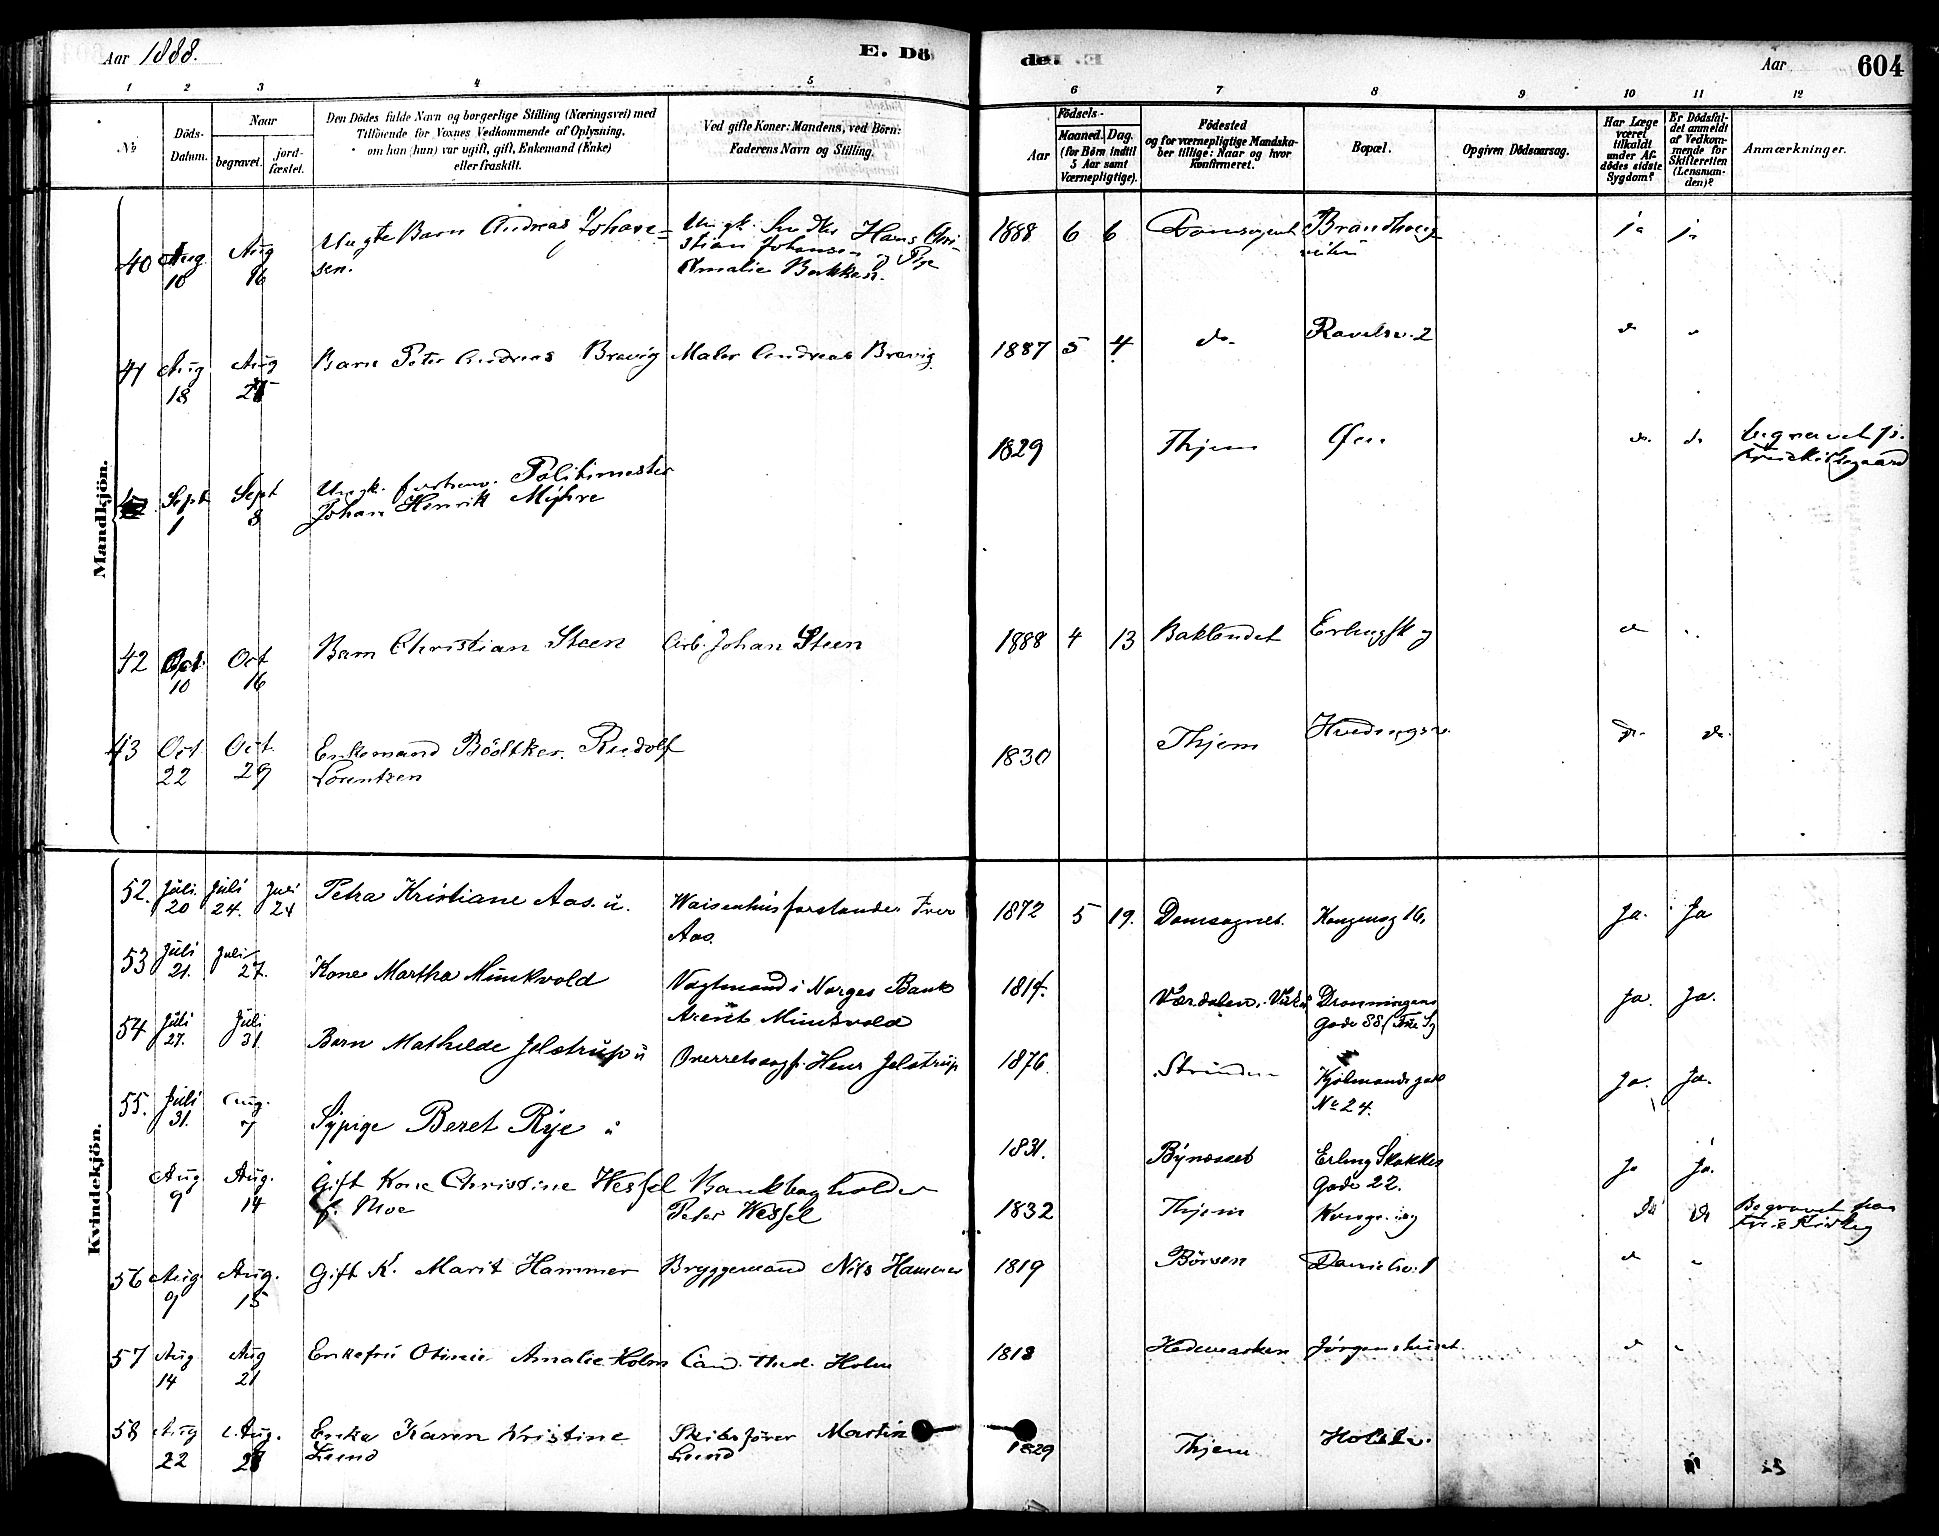 Aar 1888.
E. Dö
de.
Aar
604
1
2
3
4
5
6
7
8
9
10
11
12
No
Döds-
Datum.
Naar
begravet.
jord-
fæstet.
Den Dödes fulde Navn og borgerlige Stilling (Næringsvei) med
Tilföiende for Voxnes Vedkommende af Oplysning,
om han (hun) var ugift, gift, Enkemand (Enke)
eller fraskilt.
Ved gifte Koner: Mandens, ved Börn:
Faderens Navn og Stilling.
Födsels-
Aar
Maaned.
Dag.
(for Börn indtil
5 Aar samt
Værnepligtige).
Födested
og for værnepligtige Mandska-
ber tillige: Naar og hvor
konfirmeret.
Bopæl.
Opgiven Dödsaarsag.
Har Læge
været
tilkaldt
under Af-
dödes sidste
Sygdom?
Er Dödsfal-
det anmeldt
af Vedkom-
mende for
Skifteretten
(Lensman-
den)?
Anmærkninger.
Mandkjön.
40 Aug. 10 Aug 16 Uægte Barn Andreas Johan-
sen. Ungk. Hans Chri-
stian Johansen og Pige
Amalie Bakken. 1888 6 6 Domsognet Brandhveg
veiten ja ja
41 Aug 18 Aug 25 Barn Peter Andreas Brevig Maler Andreas Brevig 1887 5 4 do. Ravelsv. 2 d
Sept 1 Sept 8 Ungk. forhenv. Politimester
Johan Henrik Myhre 1829 Thjem Øen do. do begravet p.
42 Oct. 10 Oct 16 Barn Christian Steen Arb. Johan Steen 1888 4 13 Baklandet d
43 Oct. 22 Oct. 29 Enkemand Bödtker Rudolf
Lorentzen 1830 Thjem do. do.
Kvindekjön.
52. Juli. 20 Juli 24. Juli 24 Petra Kristiane Aas. u. Waisenhusforstander Iver
Aas. 1872 5 19. Domsognet. Kongensg 16. Ja. Ja
53 Juli 21. Juli 27. Kone Martha Munkvold Vagtmand i Norges Bank
Arent Munkvold 1814. Værdalen. Dronningens
Gade Ja. Ja.
54 Juli 27. Juli 31 Barn Mathilde Jelstrup u Overretssagf. Henr Jelstrup 1876. Strinden Kjölmandsgade
No 24. Ja. Ja.
55. Juli 31. Aug. 7 Sypige Beret Rye u 1831. Bynesset Erling Skakkes
Gade 22. Ja Ja.
Aug 9 Aug. 14 Gift Kone Christine Wessel
f. Moe Bankbogholder
Peter Wessel 1832 Thjem Kongensg do do Begravet paa
56 Aug. 9 Aug. 15 Gift K. Marit Hammer Bryggemand Nils Hammer 1819 Börsen d
57 Aug 14 Aug 21 Enkefru Otinie Amalie Holm Cand. theol. Holm 1818 Hedemarken Jörgenshuset. d
58 Aug 22 Aug. 28 Enke Karen Kristine
Lund Skibsförer Martin
Lund 1829 Thjem